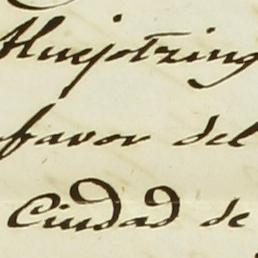 Huejotzing
favor del
Ciudad de